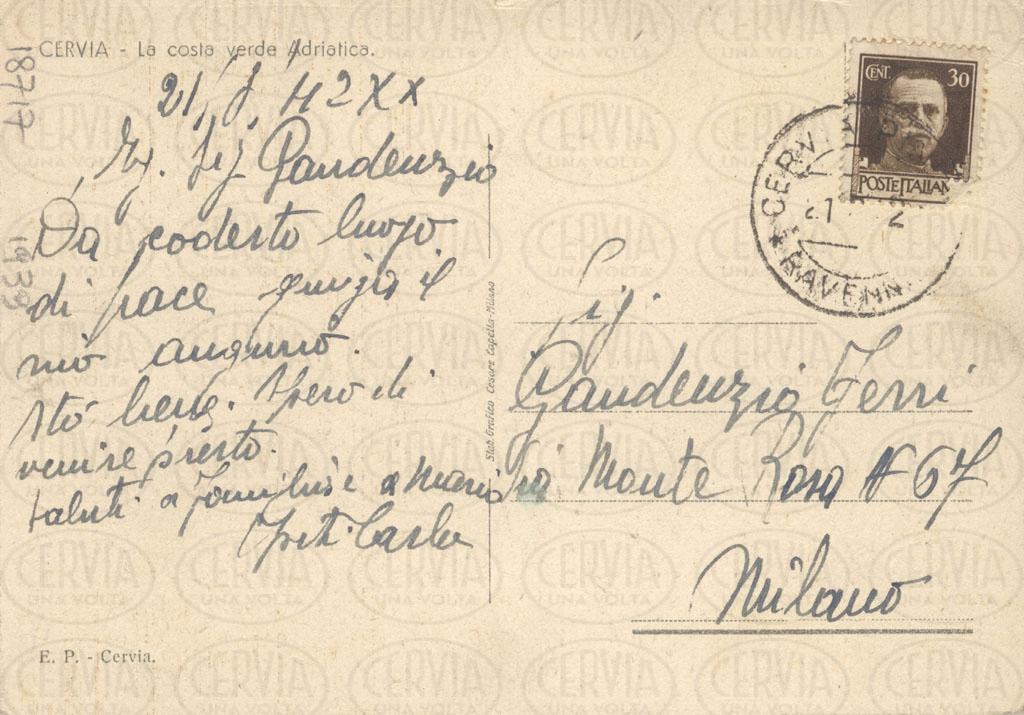 CERVIA - La costa verde Adriatica.
21, 8, 42 XX
Sig Gaudenzio
Da codesto luogo
di pace giunga il
mio augurio.
Stò bene. Spero di
venire presto.
saluti a famiglia e a Mario
Carlo
18717
1939
Stab. Grafico Cesare Capello-Milano
CENT. 30
POSTE ITALIANE
CERVIA
RAVENNA
Sig
Gaudenzio Ferri
Via Monte Rosa N 67
Milano
E. P. - Cervia.
CERVIA
UNA VOLTA